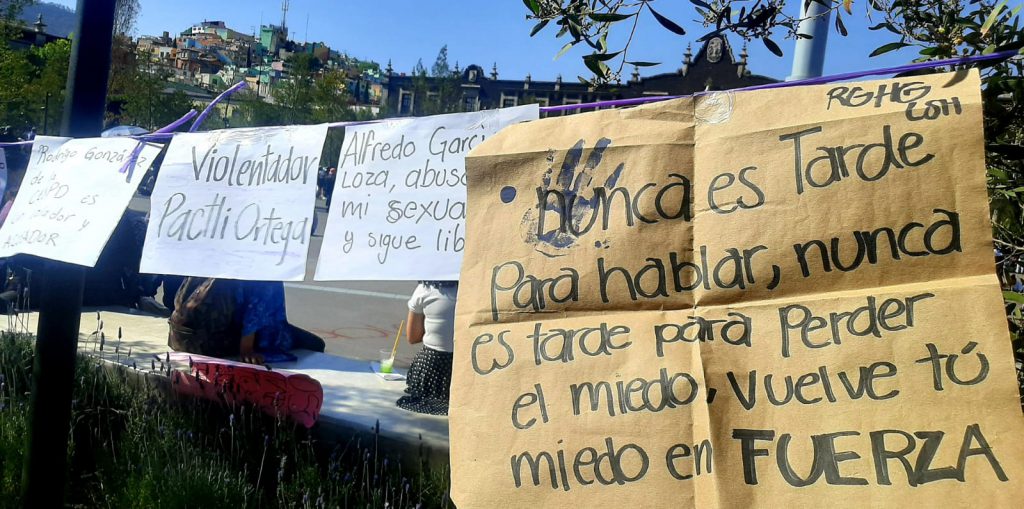 Rodrigo González
de la
es
y
ACOSADOR
Violentador
Pactli Ortega
Alfredo Garci
Loza, abusó
mi sexua
y sigue lib
RGHG
LSH
• nunca es Tarde
Para hablar, nunca
es tarde para Perder
el miedo, vuelve tú
miedo en FUERZA